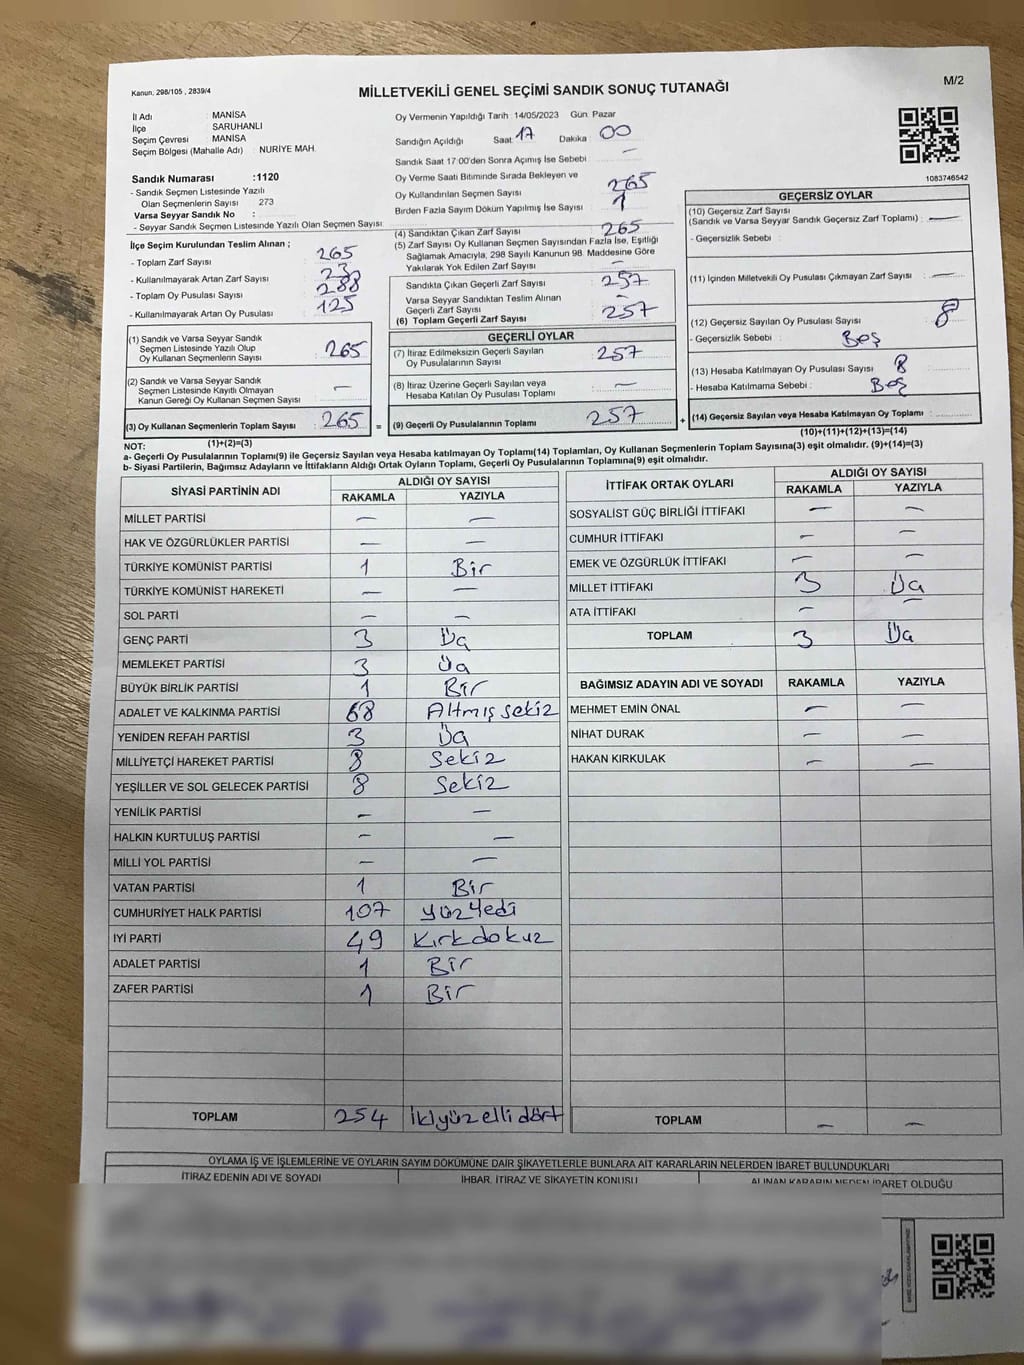 Kanun; 298/105 , 2839/4
MİLLETVEKİLİ GENEL SEÇİMİ SANDIK SONUÇ TUTANAĞI
M/2
İl Adı : MANİSA
İlçe SARUHANLI
Seçim Çevresi : MANİSA
Seçim Bölgesi (Mahalle Adı) : NURİYE MAH.
Sandık Numarası :1120
- Sandık Seçmen Listesinde Yazılı
Olan Seçmenlerin Sayısı : 273
Varsa Seyyar Sandık No :
- Seyyar Sandık Seçmen Listesinde Yazılı Olan Seçmen Sayısı:
İlçe Seçim Kurulundan Teslim Alınan ;
- Toplam Zarf Sayısı : 265
- Kullanılmayarak Artan Zarf Sayısı : 23
- Toplam Oy Pusulası Sayısı : 288
- Kullanılmayarak Artan Oy Pusulası : 125
(1) Sandık ve Varsa Seyyar Sandık
Seçmen Listesinde Yazılı Olup
Oy Kullanan Seçmenlerin Sayısı : 265
(2) Sandık ve Varsa Seyyar Sandık
Seçmen Listesinde Kayıtlı Olmayan
Kanun Gereği Oy Kullanan Seçmen Sayısı : —
(3) Oy Kullanan Seçmenlerin Toplam Sayısı : 265
(1)+(2)=(3)
Oy Vermenin Yapıldığı Tarih : 14/05/2023 Gün: Pazar
Sandığın Açıldığı Saat: 17 Dakika : 00
Sandık Saat 17:00'den Sonra Açımış İse Sebebi : —
Oy Verme Saati Bitiminde Sırada Bekleyen ve
Oy Kullandırılan Seçmen Sayısı : 265
Birden Fazla Sayım Döküm Yapılmış İse Sayısı : 1
(4) Sandıktan Çıkan Zarf Sayısı : 265
(5) Zarf Sayısı Oy Kullanan Seçmen Sayısından Fazla İse, Eşitliği
Sağlamak Amacıyla, 298 Sayılı Kanunun 98. Maddesine Göre
Yakılarak Yok Edilen Zarf Sayısı : —
Sandıkta Çıkan Geçerli Zarf Sayısı : 257
Varsa Seyyar Sandıktan Teslim Alınan
Geçerli Zarf Sayısı : —
(6) Toplam Geçerli Zarf Sayısı : 257
GEÇERLİ OYLAR
(7) İtiraz Edilmeksizin Geçerli Sayılan
Oy Pusulalarının Sayısı : 257
(8) İtiraz Üzerine Geçerli Sayılan veya
Hesaba Katılan Oy Pusulası Toplamı : —
= (9) Geçerli Oy Pusulalarının Toplamı : 257 +
1083746542
GEÇERSİZ OYLAR
(10) Geçersiz Zarf Sayısı
(Sandık ve Varsa Seyyar Sandık Geçersiz Zarf Toplamı) : —
- Geçersizlik Sebebi :
(11) İçinden Milletvekili Oy Pusulası Çıkmayan Zarf Sayısı : —
(12) Geçersiz Sayılan Oy Pusulası Sayısı : 8
- Geçersizlik Sebebi : Boş
(13) Hesaba Katılmayan Oy Pusulası Sayısı : 8
- Hesaba Katılmama Sebebi : Boş
(14) Geçersiz Sayılan veya Hesaba Katılmayan Oy Toplamı :
(10)+(11)+(12)+(13)=(14)
NOT:
a- Geçerli Oy Pusulalarının Toplamı(9) ile Geçersiz Sayılan veya Hesaba katılmayan Oy Toplamı(14) Toplamları, Oy Kullanan Seçmenlerin Toplam Sayısına(3) eşit olmalıdır. (9)+(14)=(3)
b- Siyasi Partilerin, Bağımsız Adayların ve İttifakların Aldığı Ortak Oyların Toplamı, Geçerli Oy Pusulalarının Toplamına(9) eşit olmalıdır.
SİYASİ PARTİNİN ADI ALDIĞI OY SAYISI
RAKAMLA YAZIYLA
MİLLET PARTİSİ — —
HAK VE ÖZGÜRLÜKLER PARTİSİ — —
TÜRKİYE KOMÜNİST PARTİSİ 1 Bir
TÜRKİYE KOMÜNİST HAREKETİ — —
SOL PARTİ — —
GENÇ PARTİ 3 Üç
MEMLEKET PARTİSİ 3 Üç
BÜYÜK BİRLİK PARTİSİ 1 Bir
ADALET VE KALKINMA PARTİSİ 68 Altmış sekiz
YENİDEN REFAH PARTİSİ 3 Üç
MİLLİYETÇİ HAREKET PARTİSİ 8 Sekiz
YEŞİLLER VE SOL GELECEK PARTİSİ 8 Sekiz
YENİLİK PARTİSİ — —
HALKIN KURTULUŞ PARTİSİ — —
MİLLİ YOL PARTİSİ — —
VATAN PARTİSİ 1 Bir
CUMHURİYET HALK PARTİSİ 107 Yüz Yedi
İYİ PARTİ 49 Kırk dokuz
ADALET PARTİSİ 1 Bir
ZAFER PARTİSİ 1 Bir
TOPLAM 254 İkiyüz elli dört
İTTİFAK ORTAK OYLARI ALDIĞI OY SAYISI
RAKAMLA YAZIYLA
SOSYALİST GÜÇ BİRLİĞİ İTTİFAKI — —
CUMHUR İTTİFAKI — —
EMEK VE ÖZGÜRLÜK İTTİFAKI — —
MİLLET İTTİFAKI 3 Üç
ATA İTTİFAKI — —
TOPLAM 3 Üç
BAĞIMSIZ ADAYIN ADI VE SOYADI RAKAMLA YAZIYLA
MEHMET EMİN ÖNAL — —
NİHAT DURAK — —
HAKAN KIRKULAK — —
TOPLAM — —
OYLAMA İŞ VE İŞLEMLERİNE VE OYLARIN SAYIM DÖKÜMÜNE DAİR ŞİKAYETLERLE BUNLARA AİT KARARLARIN NELERDEN İBARET BULUNDUKLARI
İTİRAZ EDENİN ADI VE SOYADI İHBAR, İTİRAZ VE ŞİKAYETİN KONUSU ALINAN KARARIN NEDEN İBARET OLDUĞU